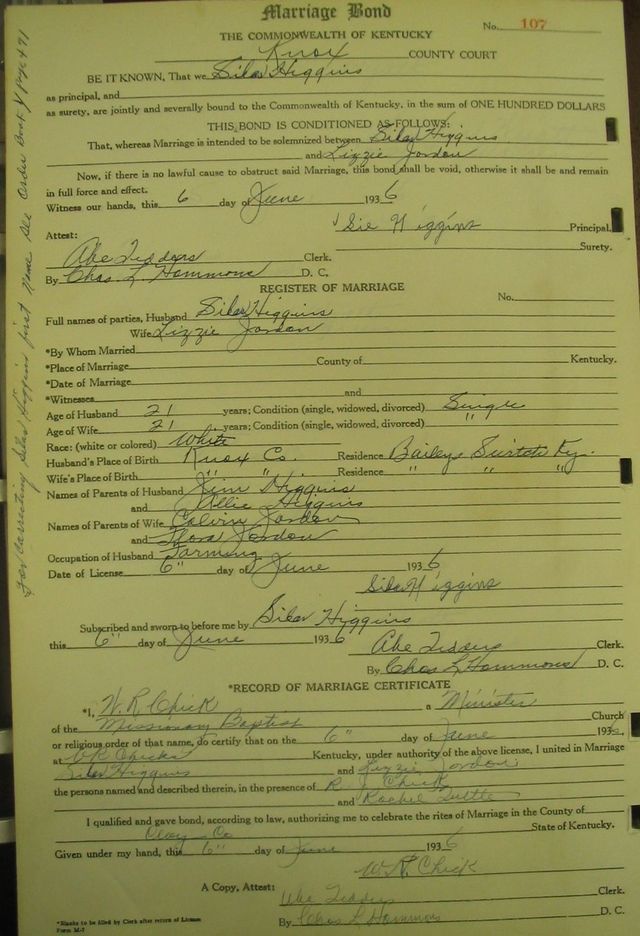 Marriage Bond
No. 107
THE COMMONWEALTH OF KENTUCKY
Knox COUNTY COURT
BE IT KNOWN, That we Silas Higgins
as principal, and
as surety, are jointly and severally bound to the Commonwealth of Kentucky, in the sum of ONE HUNDRED DOLLARS
THIS BOND IS CONDITIONED AS FOLLOWS:
That, whereas Marriage is intended to be solemnized between Silas Higgins
and Lizzie Jordon
Now, if there is no lawful cause to obstruct said Marriage, this bond shall be void, otherwise it shall be and remain
in full force and effect.
Witness our hands, this 6 day of June 1936
Sie Higgins Principal,
Attest: Surety.
Abe Clerk.
By Chas. L. Hammons D. C.
REGISTER OF MARRIAGE
No.
Full names of parties, Husband Silas Higgins
Wife Lizzie Jordon
*By Whom Married
*Place of Marriage County of Kentucky.
*Date of Marriage
*Witnesses and
Age of Husband 21 years; Condition (single, widowed, divorced) Single
Age of Wife 21 years; Condition (single, widowed, divorced) "
Race: (white or colored) White
Husband's Place of Birth Knox Co. Residence Baileys Ky.
Wife's Place of Birth " " Residence " " "
Names of Parents of Husband Jim Higgins
and Higgins
Names of Parents of Wife Calvin Jordon
and Flora Jordon
Occupation of Husband Farming
Date of License 6" day of June 1936
Silas Higgins
Subscribed and sworn to before me by Silas Higgins
this 6" day of June 1936
Abe Clerk.
By Chas L Hammons D. C.
*RECORD OF MARRIAGE CERTIFICATE
*I, W. R. Chick a Minister
of the Missionary Baptist Church
or religious order of that name, do certify that on the 6" day of June 1936,
at W R Chicks Kentucky, under authority of the above license, I united in Marriage
Silas Higgins and Lizzie Jordon
the persons named and described therein, in the presence of R. J. Chick
and Rachel Tuttle
I qualified and gave bond, according to law, authorizing me to celebrate the rites of Marriage in the County of
Clay Co State of Kentucky.
Given under my hand, this 6" day of June 1936
W. R. Chick
A Copy, Attest: Abe Clerk.
By Chas L Hammons D. C.
*Blanks to be filled by Clerk after return of License
Form M-1
For Correcting Silas Higgins first Name See Order Book Y Page 471